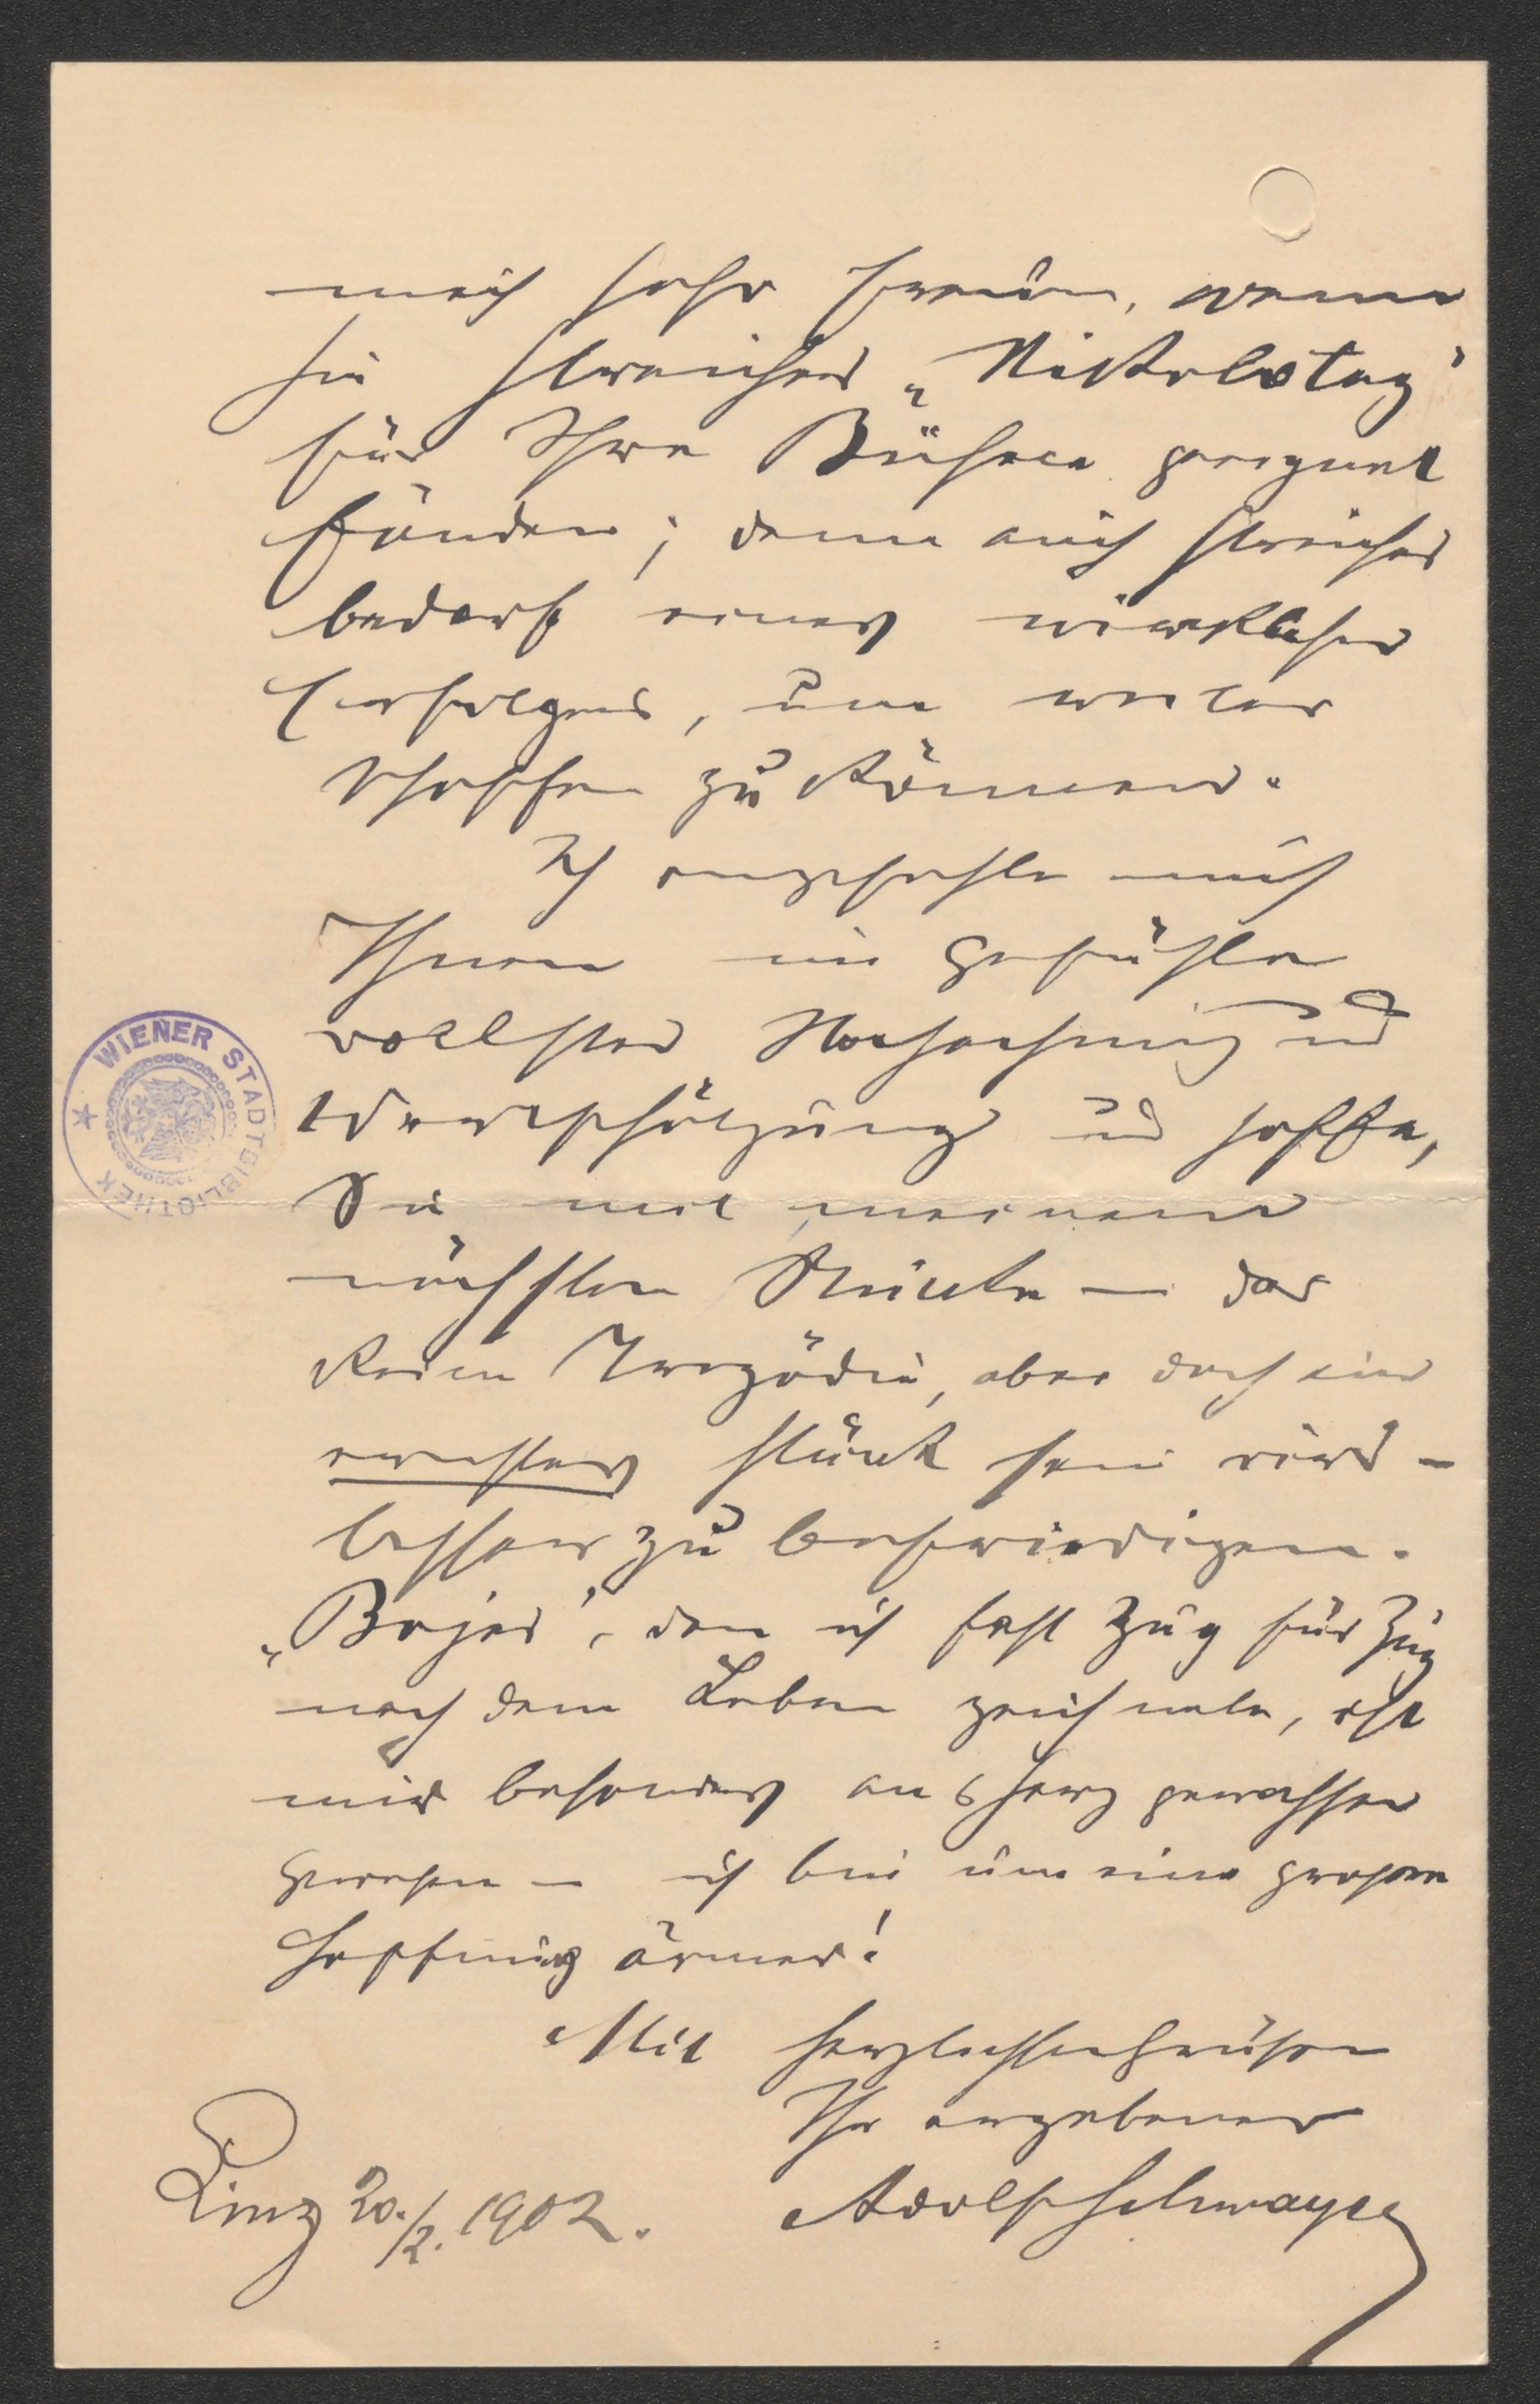 mich sehr freuen, wenn
Sie Streichers „Nikolotag“
für Ihre Bühne geeignet
fänden; denn auch Streicher
bedarf eines wirklichen
Erfolges, um weiter
schaffen zu können.
Ich empfehle mich
Ihnen im Gefühle
vollster Hochachtung und
Wertschätzung und hoffe,
Sie mit meinem
nächsten Stücke — das
keine Tragödie, aber doch ein
ernstes Stück sein wird —
besser zu befriedigen.
„Bojer“, den ich fast Zug für Zug
nach dem Leben zeichnete, ist
mir besonders ans Herz gewachsen
gewesen — ich bin um eine grosse
Hoffnung ärmer!
Mit herzlichsten Grüßen
Ihr ergebener
Linz 20./2. 1902. Adolf Schwayer
WIENER STADTBIBLIOTHEK